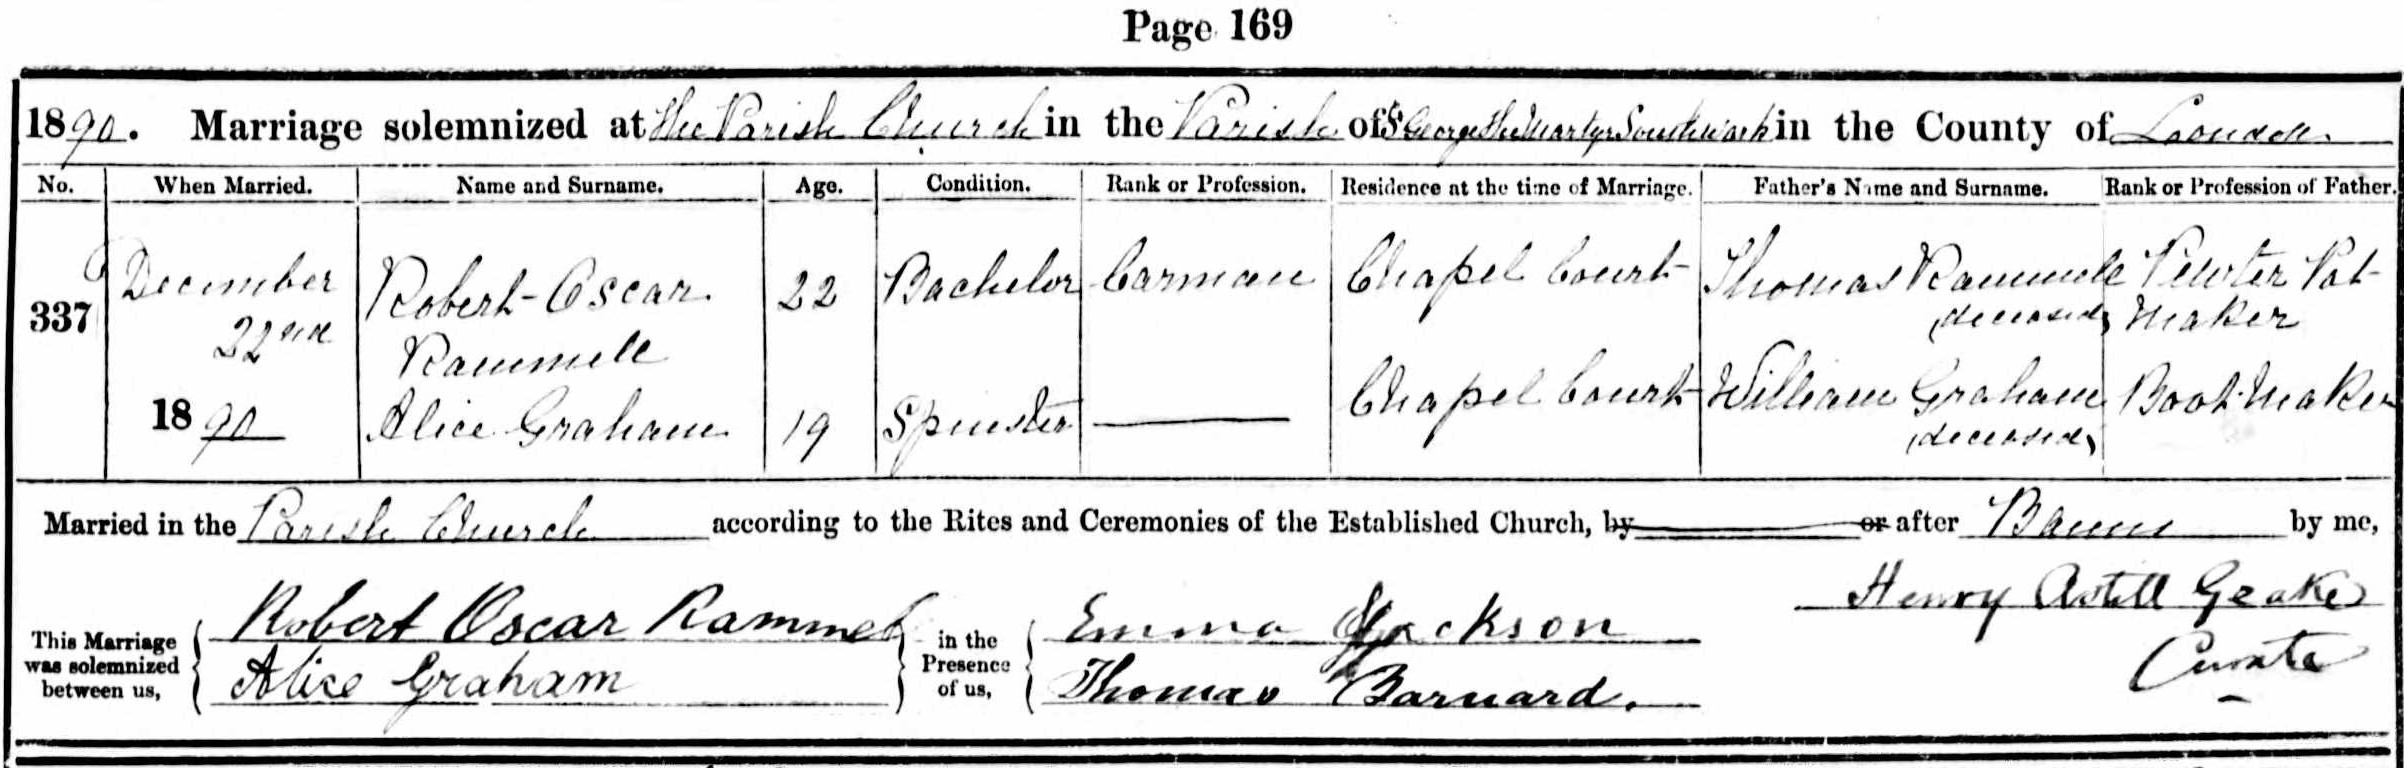 Page 169
1890. Marriage solemnized at The Parish Church in the Parish of St George the Martyr Southwark in the County of London
No. When Married. Name and Surname. Age. Condition. Rank or Profession. Residence at the time of Marriage. Father's Name and Surname. Rank or Profession of Father.
337 December 22nd 1890
Robert Oscar Rammell 22 Bachelor Carman Chapel Court Thomas Rammell (deceased) Pewter Pot Maker
Alice Graham 19 Spinster — Chapel Court William Graham (deceased) Boot Maker
Married in the Parish Church according to the Rites and Ceremonies of the Established Church, by or after Banns by me,
Henry Astill Geake
Curate
This Marriage was solemnized between us,
Robert Oscar Rammel
Alice Graham
in the Presence of us,
Emma Jackson
Thomas Barnard.